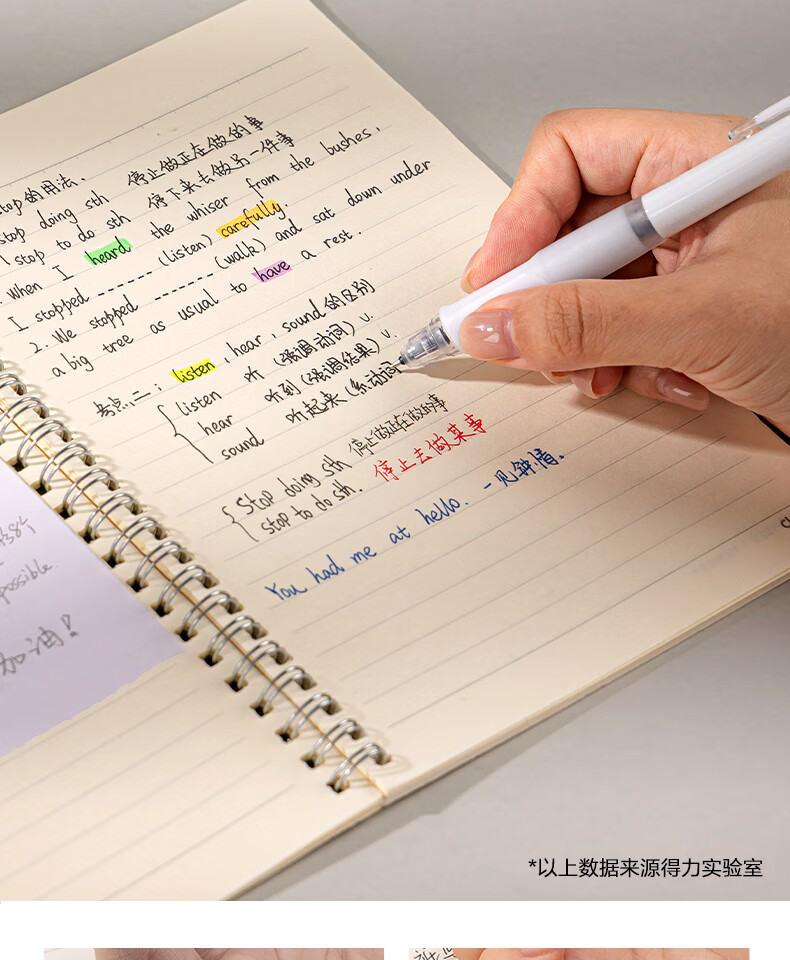 stop的用法.
stop doing sth 停止做正在做的事
stop to do sth 停下来去做另一件事
When I heard the whiser from the bushes,
I stopped ------- (listen) carefully.
2. We stopped ------- (walk) and sat down under
a big tree as usual to have a rest.
考点二: listen, hear, sound的区别
listen 听 (强调动词) v.
hear 听到 (强调结果) v.
sound 听起来 (系动词
stop doing sth 停止做正在做的事
stop to do sth. 停止去做某事
You had me at hello. 一见钟情.
possible.
加油!
*以上数据来源得力实验室